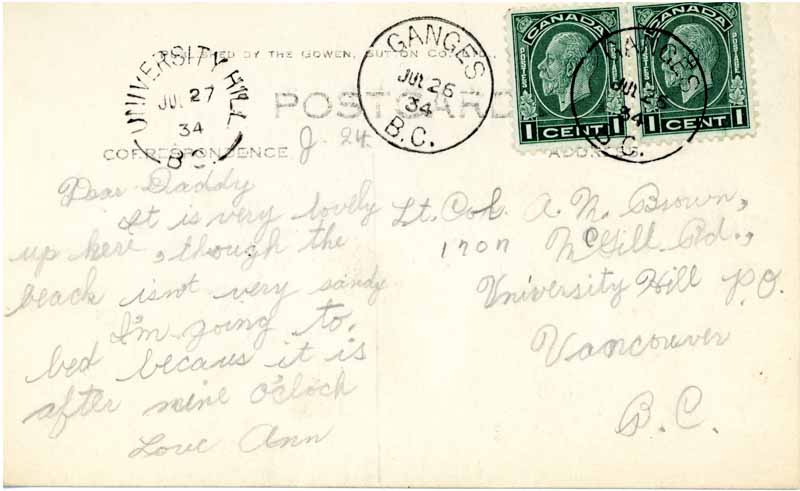 PUBLISHED BY THE GOWEN, SUTTON CO. LTD.
UNIVERSITY HILL
JUL 27
34
B.C.
GANGES
JUL 26
34
B.C.
CANADA
POSTES POSTAGE
1 CENT 1
CANADA
1 CENT 1
GANGES
JUL 26
34
B.C.
POSTCARD
CORRESPONDENCE
J. 24.
ADDRESS
Dear Daddy
It is very lovely
up here, though the
beach isnt very sandy
I'm going to,
bed becaus it is
after nine o'clock
Love Ann
Lt. Col. A. N. Brown,
McGill Rd.,
University Hill P.O.
Vancouver
B.C.